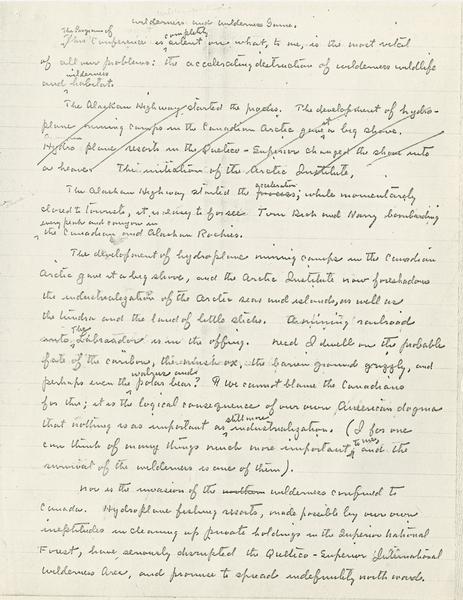 Wilderness and Wilderness Game.
The Program of completely
This Conference is silent on what, to me, is the most vital
of all our problems: the accelerating destruction of wilderness wildlife
wilderness
and habitats.
The Alaskan Highway started the process. The development of hydro-
plane mining camps in the Canadian Arctic gave it a big shove.
Hydroplane resorts in the Quetico-Superior changed the shove into
a heave. The initiation of the Arctic Institute,
acceleration
The Alaskan Highway started the process; while momentarily
closed to tourists, it is easy to forsee Tom Dick and Harry bombarding
every peak and canyon in
the Canadian and Alaskan Rockies.
The development of hydroplane mining camps in the Canadian
Arctic gave it a big shove, and the Arctic Institute now foreshadows
the industrialization of the Arctic seas and islands, as well as
the tundra and the land of little sticks. A mining railroad
The
into Labrador is in the offing. Need I dwell on the probable
fate of the caribou, the musk ox, the barren ground grizzly, and
walrus and
perhaps even the polar bear? If we cannot blame the Canadians
for this; it is the logical consequence of our own American dogma
still more
that nothing is as important as industrialization. (I for one
to me,
can think of many things much more important and the
survival of the wilderness is one of them).
Nor is the invasion of the northern wilderness confined to
Canada. Hydroplane fishing resorts, made possible by our own
ineptitudes in cleaning up private holdings in the Superior National
Forest, have seriously disrupted the Quetico-Superior International
Wilderness Area, and promise to spread indefinitely northward.